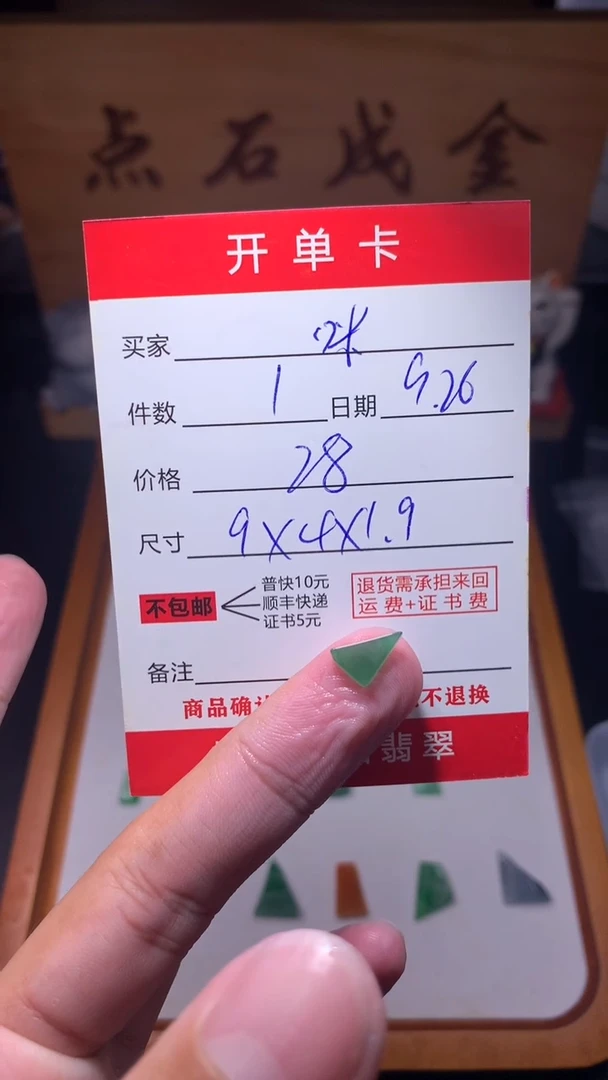 点石成金
开单卡
买家 咪
件数 1 日期 9.26
价格 28
尺寸 9X4X1.9
不包邮
普快10元
顺丰快递
证书5元
退货需承担来回
运费+证书费
备注
商品确认 不退换
翡翠